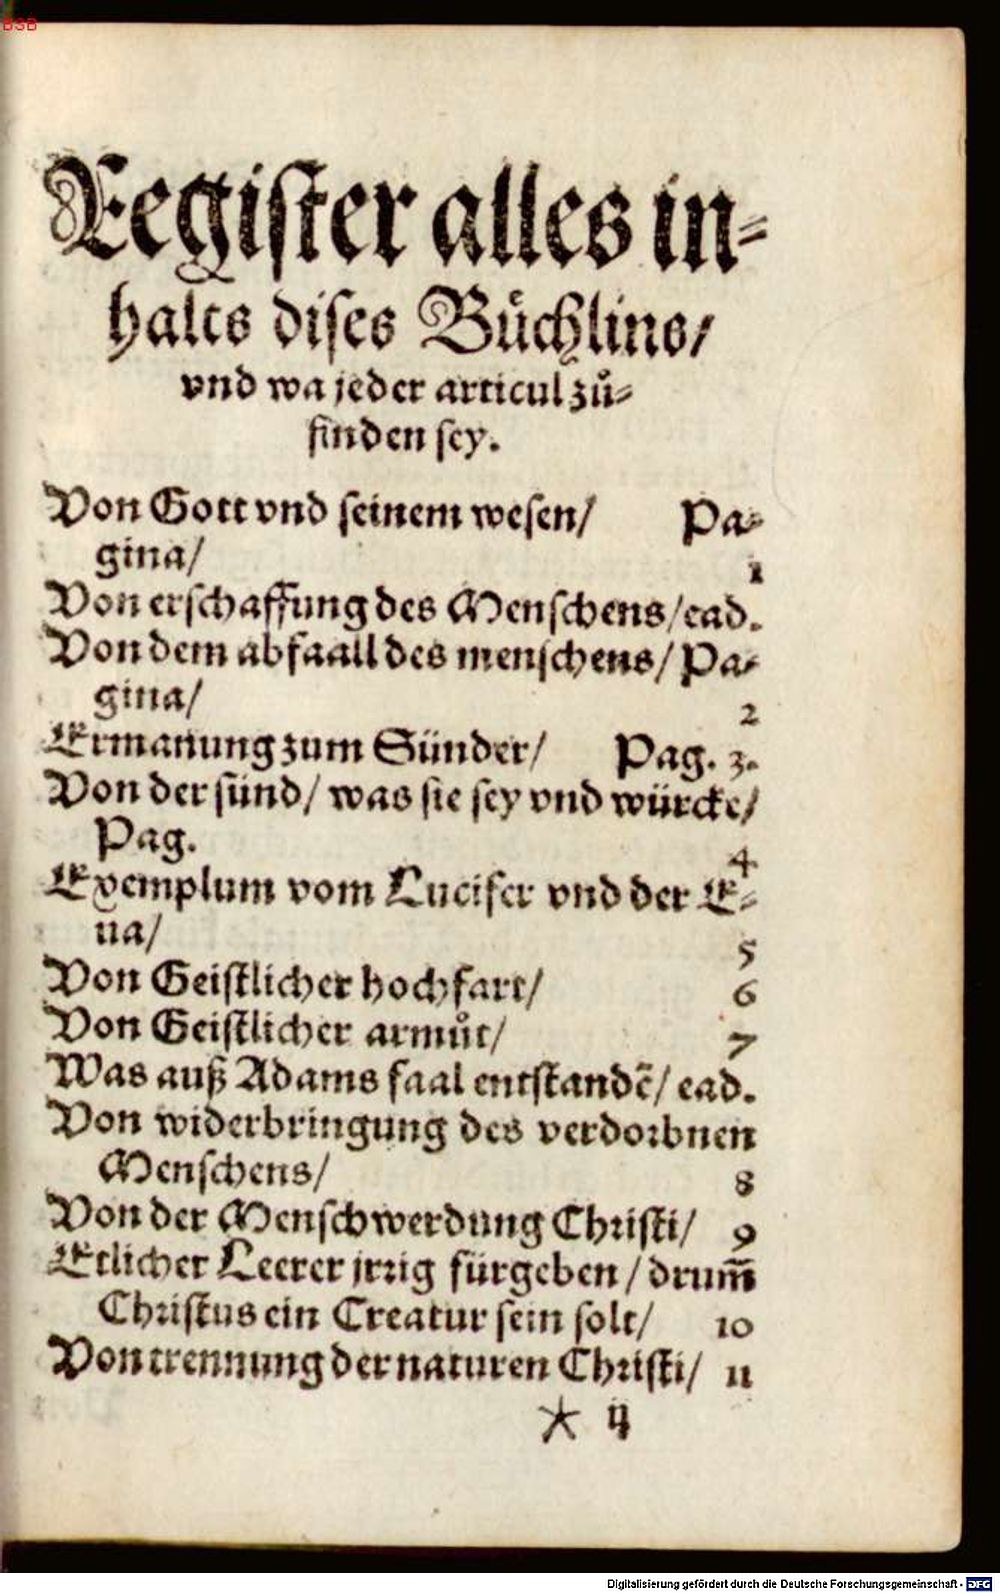 BSB
Register alles in⸗
halts diſes Buͤchlins/
vnd wa jeder articul zuͦ⸗
finden ſey.
Von Gott vnd ſeinem weſen/ Pa⸗
gina/ 1
Von erſchaffung des Menſchens/ ead.
Von dem abfaall des menſchens/ Pa⸗
gina/ 2
Ermanung zum Sünder/ Pag. 3.
Von der ſünd/ was ſie ſey vnd würcke/
Pag. 4
Exemplum vom Lucifer vnd der E⸗
ua/ 5
Von Geiſtlicher hochfart/ 6
Von Geiſtlicher armuͦt/ 7
Was auß Adams faal entſtandē/ ead.
Von widerbringung des verdorbnen
Menſchens/ 8
Von der Menſchwerdung Chriſti/ 9
Etlicher Leerer jrrig fürgeben/ drum̄
Chriſtus ein Creatur ſein ſolt/ 10
Von trennung der naturen Chriſti/ 11
* ij
Digitalisierung gefördert durch die Deutsche Forschungsgemeinschaft - DFG